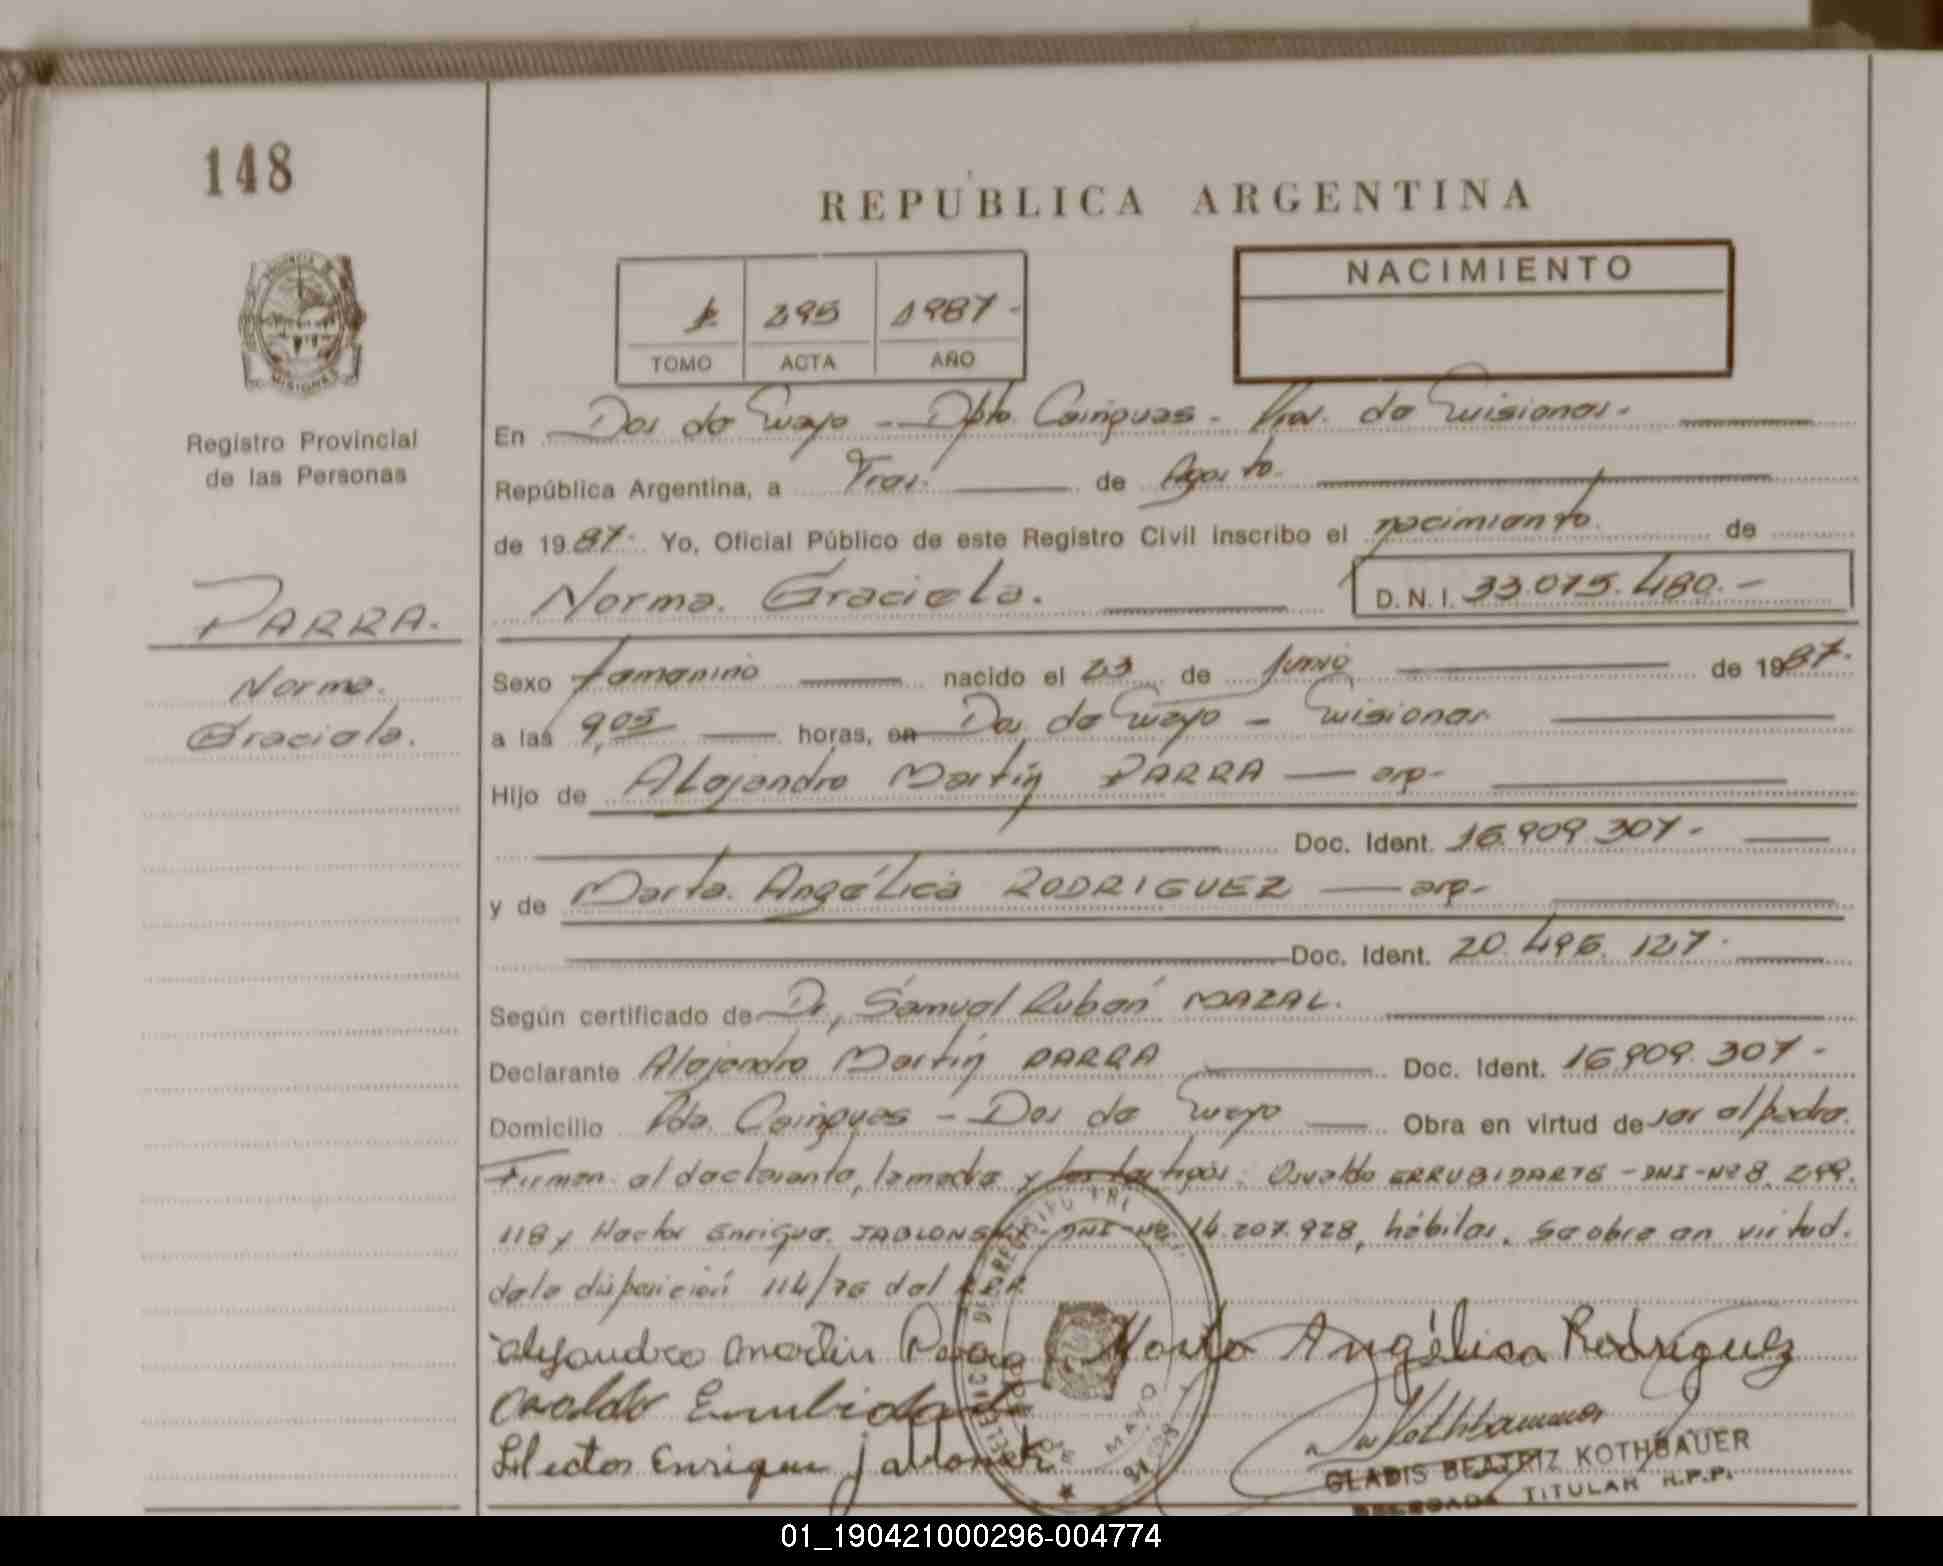 148
REPUBLICA ARGENTINA
PROVINCIA DE MISIONES
Registro Provincial
de las Personas
1 295 1987-
TOMO ACTA AÑO
NACIMIENTO
En Dos de Mayo - Dpto. Cainguas - Prov. de Misiones.-
República Argentina, a Tres de Agosto.
de 1987- Yo, Oficial Público de este Registro Civil inscribo el nacimiento de
Norma Graciela. D.N.I. 33.075.480.-
PARRA.
Norma.
Graciela.
Sexo femenino nacido el 23 de Junio de 1987.
a las 9,05 horas, en Dos de Mayo - Misiones
Hijo de Alejandro Martín PARRA — arg-
Doc. Ident. 16.909.307-
y de Marta Angélica RODRIGUEZ — arg-
Doc. Ident. 20.495.127-
Según certificado de Dr, Samuel Rubén MAZAL.
Declarante Alejandro Martín PARRA Doc. Ident. 16.909.307-
Domicilio Pda. Cainguas - Dos de Mayo Obra en virtud de ser el padre.
Firman el declarante, la madre y los testigos: Osvaldo ERRUBIDARTE - DNI-Nº 8.299.
118 y Hector Enrique JABLONSKI - DNI-Nº 14.207.928, hábiles. Se obra en virtud
de la disposición 114/76 del
Alejandro Martin Parra Marta Angélica Rodriguez
Osvaldo Errubidart
Hector Enrique Jablonski
Kothbauer
GLADIS BEATRIZ KOTHBAUER
DELEGADA TITULAR R.P.P.
01_190421000296-004774